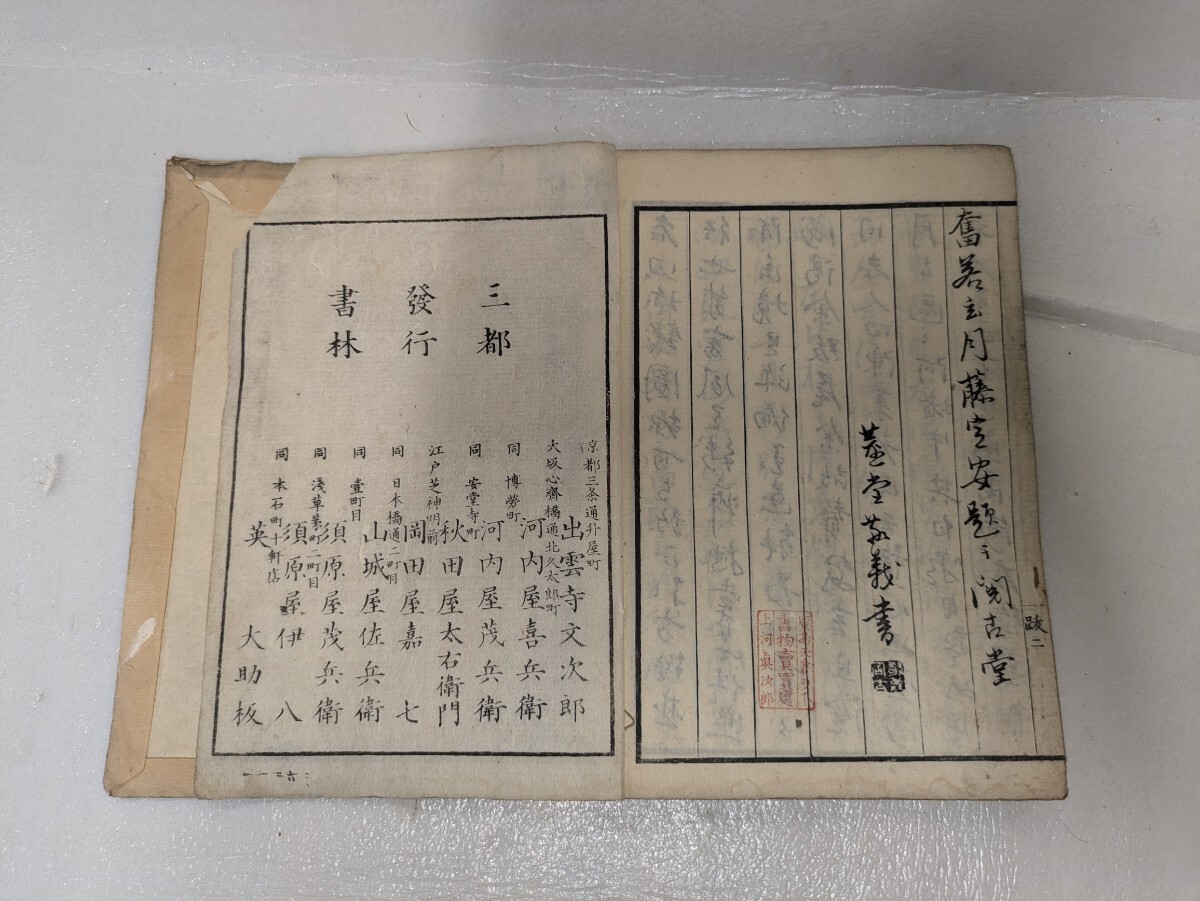 奮若玄月藤定安題之閲古堂
敬義書
跋二
書物賣買處
上河眞次郎
三都
發行
書林
京都三条通升屋町
出雲寺文次郎
大坂心齋橋通北久太郎町
河内屋喜兵衛
同 博勞町
河内屋茂兵衛
同 安堂寺町
秋田屋太右衛門
江戸芝神明前
岡田屋嘉七
同 日本橋通二町目
山城屋佐兵衛
同 壹町目
須原屋茂兵衛
同 淺草茅町二町目
須原屋伊八
同 本石町十軒店
英大助板